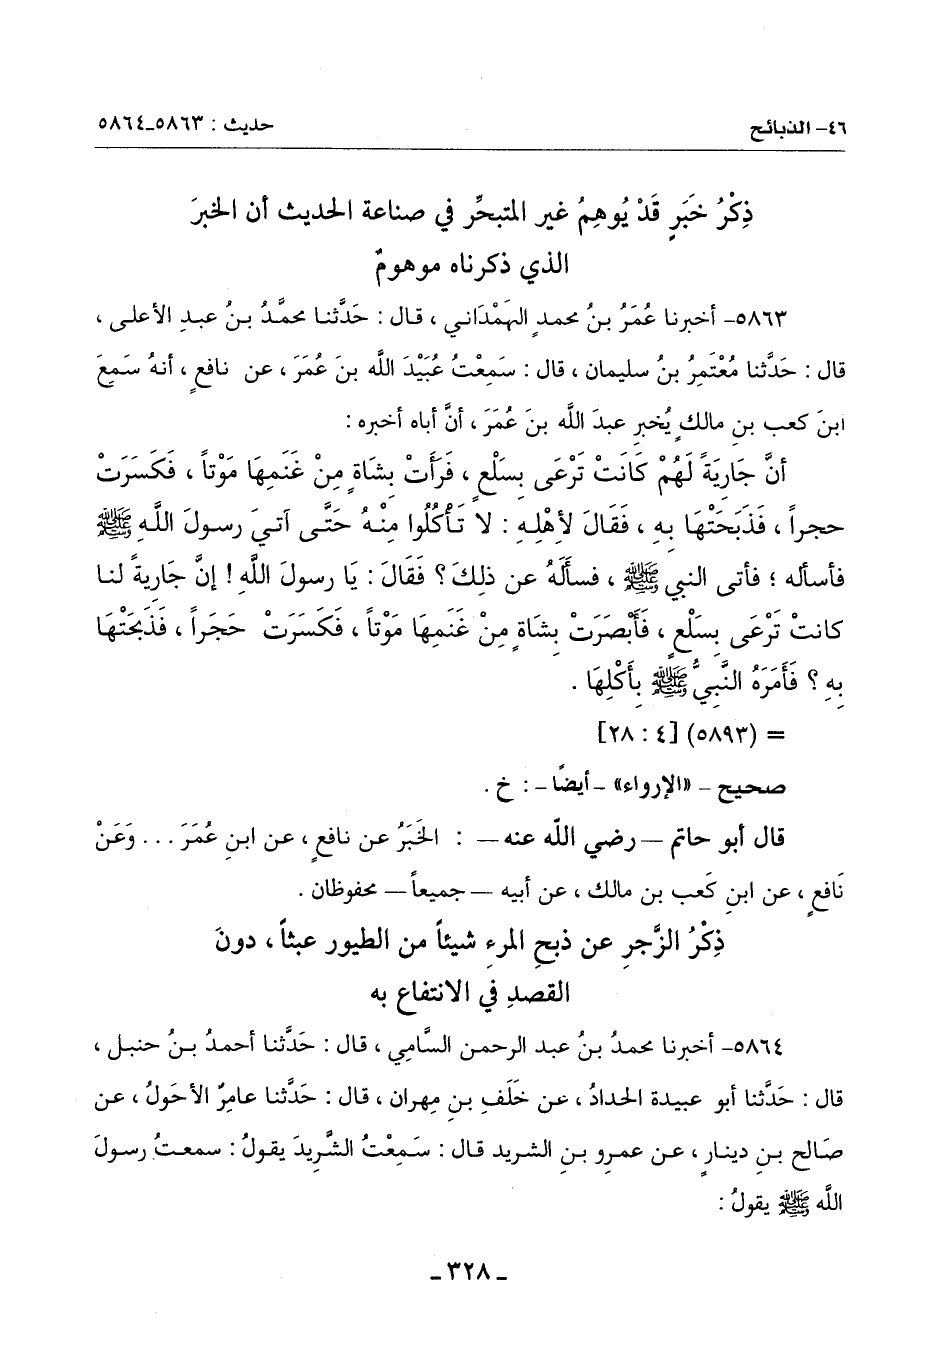 ٤٦- الذبائح حديث : ٥٨٦٣-٥٨٦٤
ذِكْرُ خَبَرٍ قَدْ يُوهِمُ غير المتبحِّر في صناعة الحديث أن الخبرَ
الذي ذكرناه موهومٌ
٥٨٦٣- أخبرنا عُمَرُ بنُ محمدٍ الهَمْدَاني ، قال : حَدَّثنا محمَّدُ بنُ عبدِ الأعلى ،
قال : حَدَّثنا مُعْتَمِرُ بنُ سليمان ، قال : سَمِعْتُ عُبَيْدَ اللَّه بنَ عُمَرَ ، عن نافعٍ ، أنهُ سَمِعَ
ابنَ كعبِ بنِ مالكٍ يُخبر عبدَ اللَّه بنَ عُمَرَ ، أنَّ أباه أخبره :
أنَّ جَارِيَةً لَهُمْ كَانَتْ تَرْعَى بِسَلْعٍ ، فَرَأَتْ بِشَاةٍ مِنْ غَنَمِهَا مَوْتاً ، فَكَسَرَتْ
حجراً ، فَذَبَحَتْهَا بِهِ ، فَقَالَ لأَهْلِهِ : لا تَأْكُلُوا مِنْهُ حَتَّى آتيَ رسولَ اللَّهِ ﷺ
فأسأله ؛ فأتى النبي ﷺ ، فسألَهُ عن ذلِكَ ؟ فَقَالَ : يَا رسولَ اللَّهِ ! إنَّ جَاريةً لنا
كانتْ تَرْعَى بِسَلْعٍ ، فَأَبْصَرَتْ بِشَاةٍ مِنْ غَنَمِهَا مَوْتاً ، فَكَسَرَتْ حَجَراً ، فَذَبَحَتْهَا
بِهِ ؟ فَأَمَرَهُ النَّبِيُّ ﷺ بِأَكْلِهَا .
= (٥٨٩٣) [٤ : ٢٨]
صحيح - «الإرواء» - أيضًا - : خ .
قال أبو حاتم — رضي اللَّه عنه — : الخَبَرُ عن نافعٍ ، عن ابنِ عُمَرَ ... وَعَنْ
نَافعٍ ، عن ابنِ كَعبِ بن مالك ، عن أبيه — جميعاً — محفوظان .
ذِكْرُ الزَّجرِ عن ذبحِ المرءِ شيئاً من الطيور عبثاً ، دونَ
القصدِ في الانتفاع به
٥٨٦٤- أخبرنا محمدُ بنُ عبد الرحمن السَّامِي ، قال : حَدَّثنا أحمدُ بنُ حنبل ،
قال : حَدَّثنا أبو عبيدة الحدادُ ، عن خَلَفِ بنِ مِهران ، قال : حَدَّثنا عامرٌ الأحوَلُ ، عن
صَالحِ بنِ دينارٍ ، عن عمرِو بنِ الشريد قال : سَمِعْتُ الشَّرِيدَ يقولُ : سمعتُ رسولَ
اللَّه ﷺ يقولُ :
- ٣٢٨ -